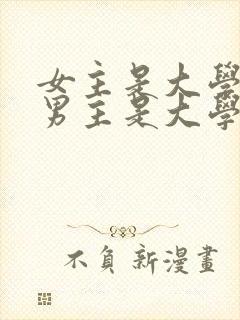 女主是大學
男主是大學
不負新漫畫